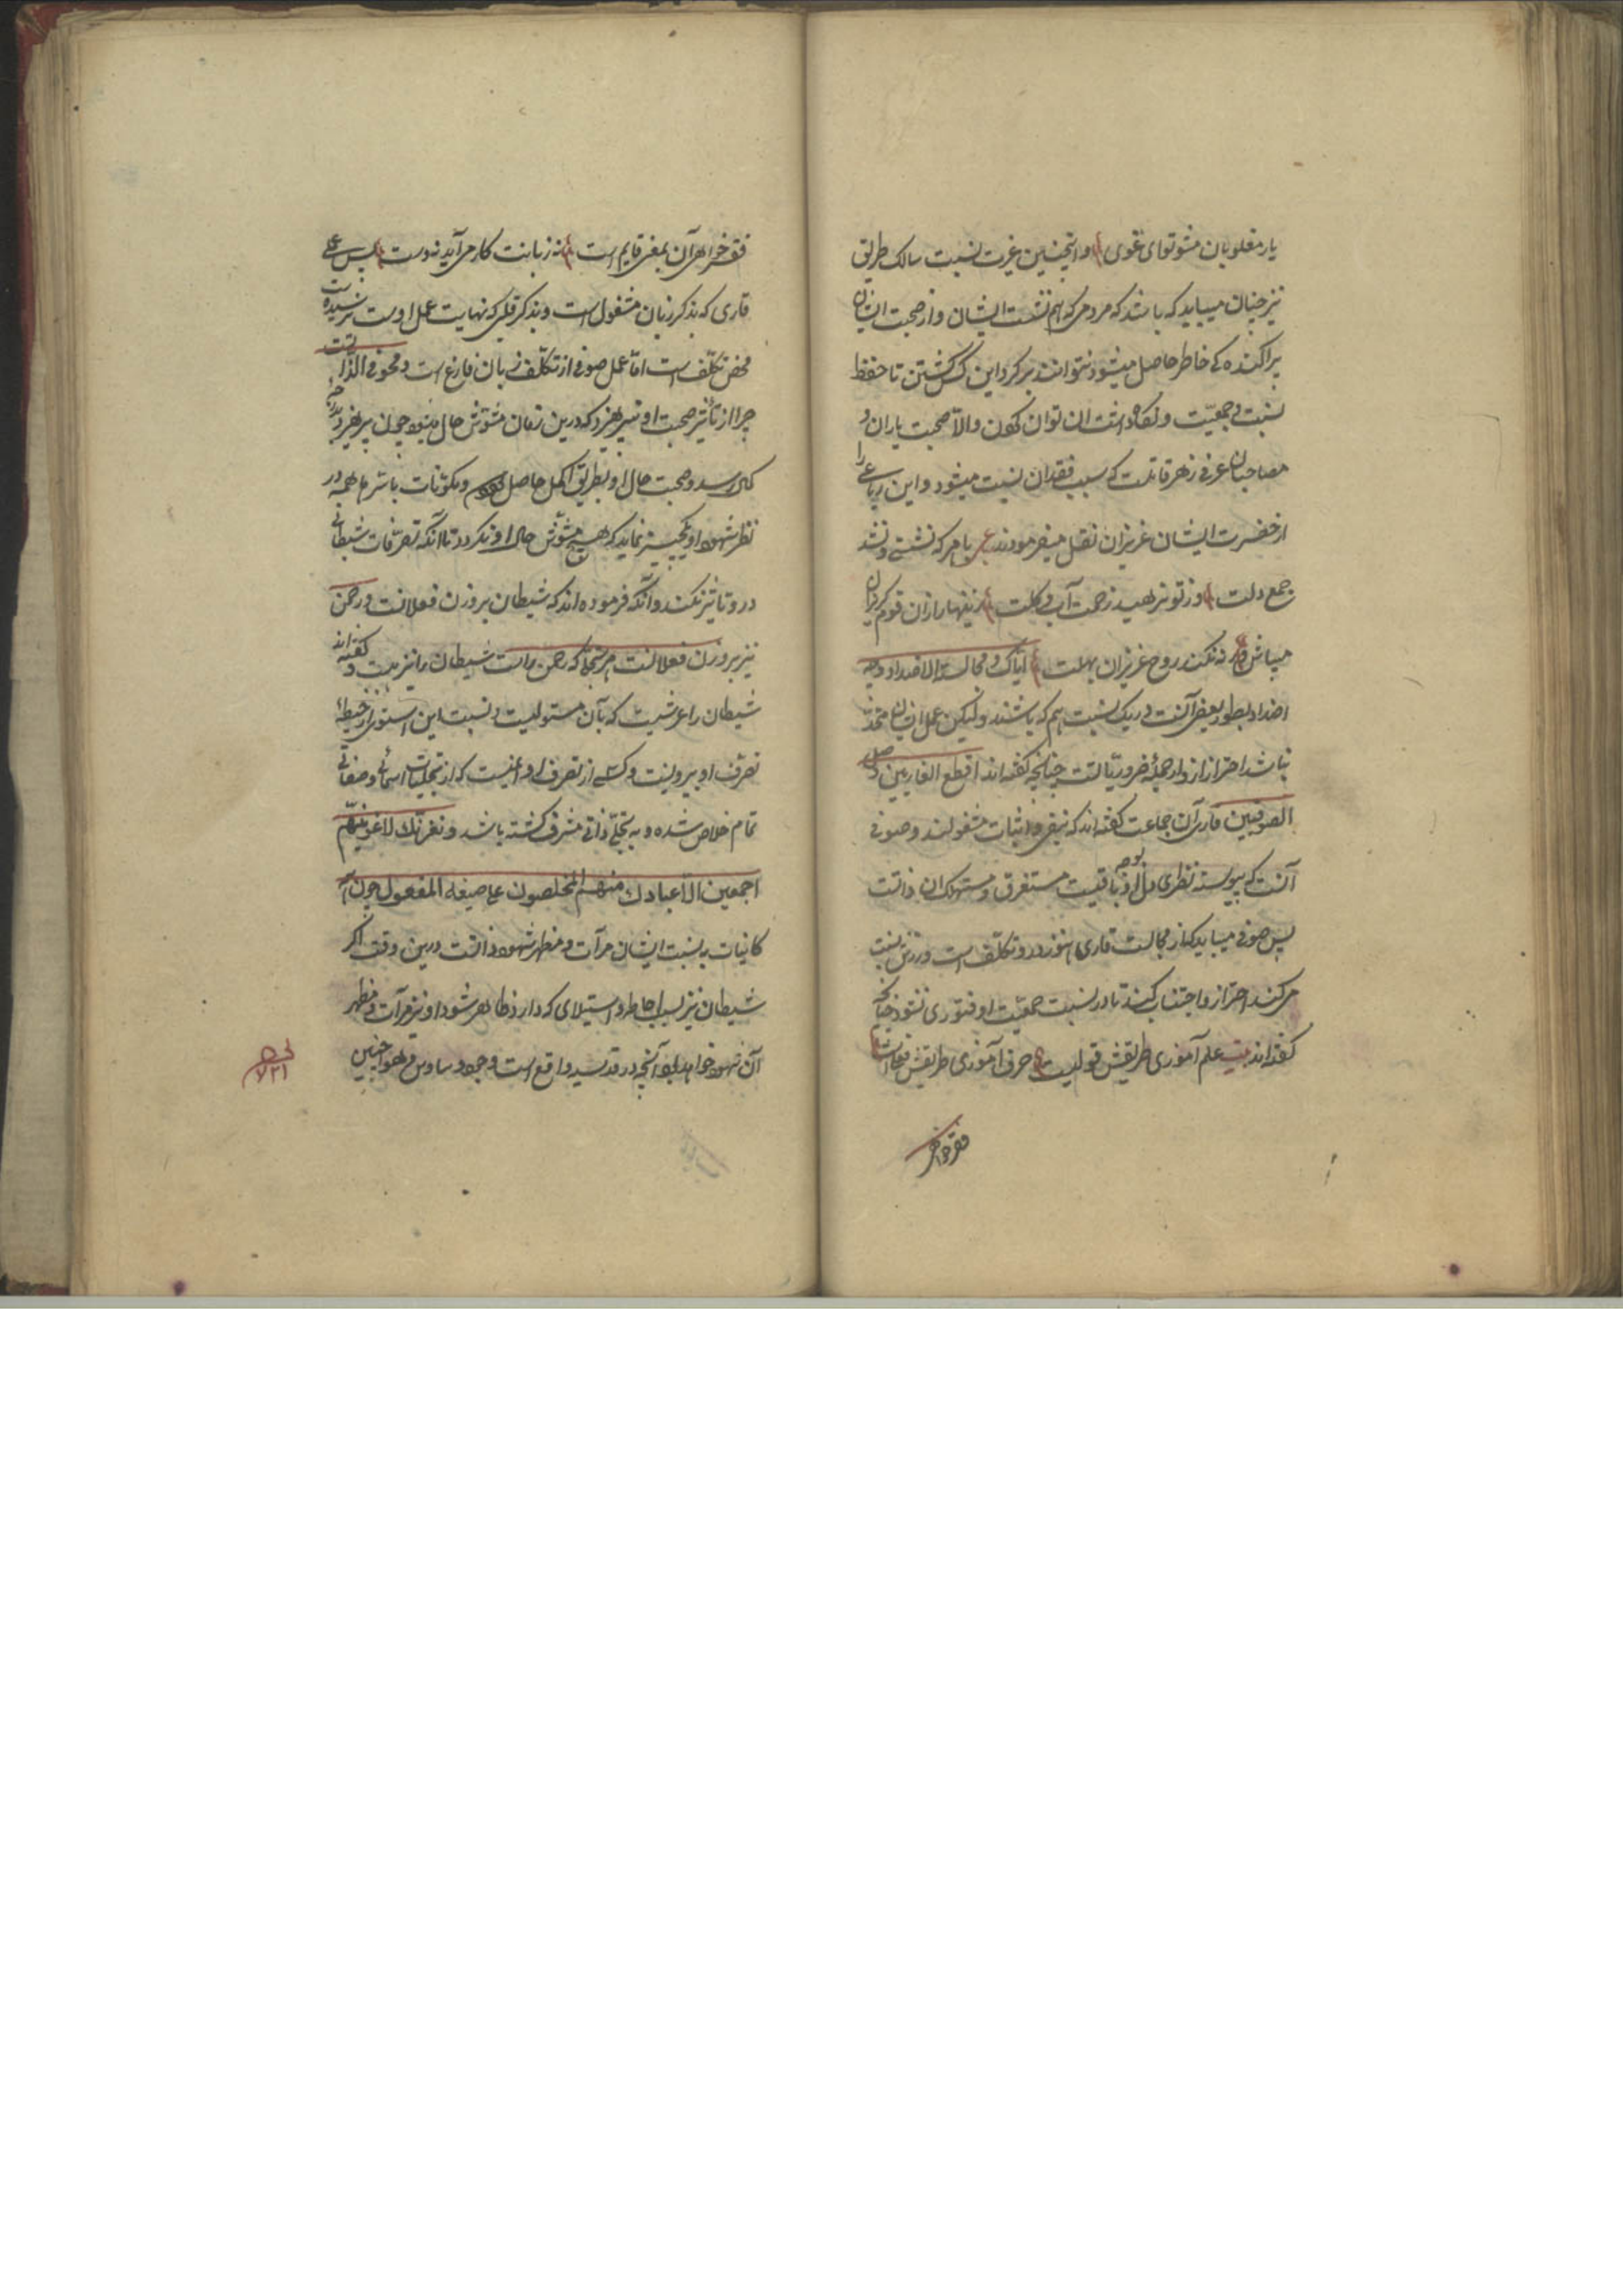 یار مغلوبان مشو تو ای غوی و اینچنین غیرت نسبت سالک طریق
نیز چنان میباید که باشد که مردمی که هم نشست ایشان و از صحبت ایشان
پراکنده کی خاطر حاصل میشود نتوانند بر کرد این کس کشتن تا حفظ
نسبت و جمعیت و نگاه داشت آن توان کردن و الّا صحبت یاران و
مصاحبان عرفی زهر قاتلست که سبب فقدان نسبت میشود و این رباعی را
از حضرت ایشان عزیزان نقل میفرمودند با هر که نشستی و نشد
جمع دلت وز تو نرهید زحمت آب و گلت زینهار ازان قوم گریزان
میباش ورنه نکند روح عزیزان بحلت ایاک و مجالسة الاضداد و
اضداد بطور بعضی آنست در یک نسبت هم که باشند ولیکن عمل ایشان متحد
نباشد احتراز ازو از جمله ضروریاتست چنانچه گفته اند اقطع القاریین وصل
الصوفیین قاری آن جماعت گفته اند که بنفی و اثبات مشغولند و صوفی
آنست که پیوسته نظری دل او بوجه باقیست مستغرق و مستهلک آن ذاتست
پس صوفی میباید کز مجالست قاری هنوز در و تکلف است ورزش نسبت
میکند احتراز و اجتناب کند تا در نسبت جمعیت او فتوری نشود چنانچه
گفته اند بیت علم آموزی طریقش قولیست حرف آموزی طریقش فعلیست
فقر خواهی
فقر خواهی آن بمغز قایم است نه زبانت کار می آید نه دست پس عمل
قاری که بذکر زبان مشغول است و بذکر قلبی که نهایت عمل اوست نرسیده است
محض تکلف است امّا عمل صوفی از تکلف زبان فارغ است و محو فی الذات است
چرا از تأثیر صحبت او نپرهیزد که درین زمان مشوّش حال میشود چون پرهیزد بدرجه
کمال رسد و صحبت حال او بطریق اکمل حاصل شود و مکونات باسرها همه در
نظر شهود او یکچیز نماید که هیچ مشوّش حال او نگردد تا آنکه تصرّفات شیطانی
در و تاثیر نکند و آنکه فرموده اند که شیطان بر وزن فعلانست و رحمن
نیز بر وزن فعلانست هر تنجا که رحمن راست شیطان را نیز هست و گفته اند
شیطان را عرشیست که بآن مستولیست و نسبت این استوی از حیطه
تصرف او بیرونست و کسی از تصرف او ایمنیست که از تجلیات اسمائی و صفاتی
تمام خلاص شده و به تجلّی ذاتی مشرف گشته باشد و بعزتک لاغوینهم
اجمعین الّا عبادک منهم المخلصون علی صیغة المفعول چون
کاینات به نسبت ایشان مرآت و مظهر شهود ذاتست درین وقت اگر
شیطان نیز بسبب احاطه و استیلای که دارد ظاهر شود او نیز مرآت و مظهر
آن شهود خواهد بود آنچه در قدسیه واقع است وجود وساوس و هواجس